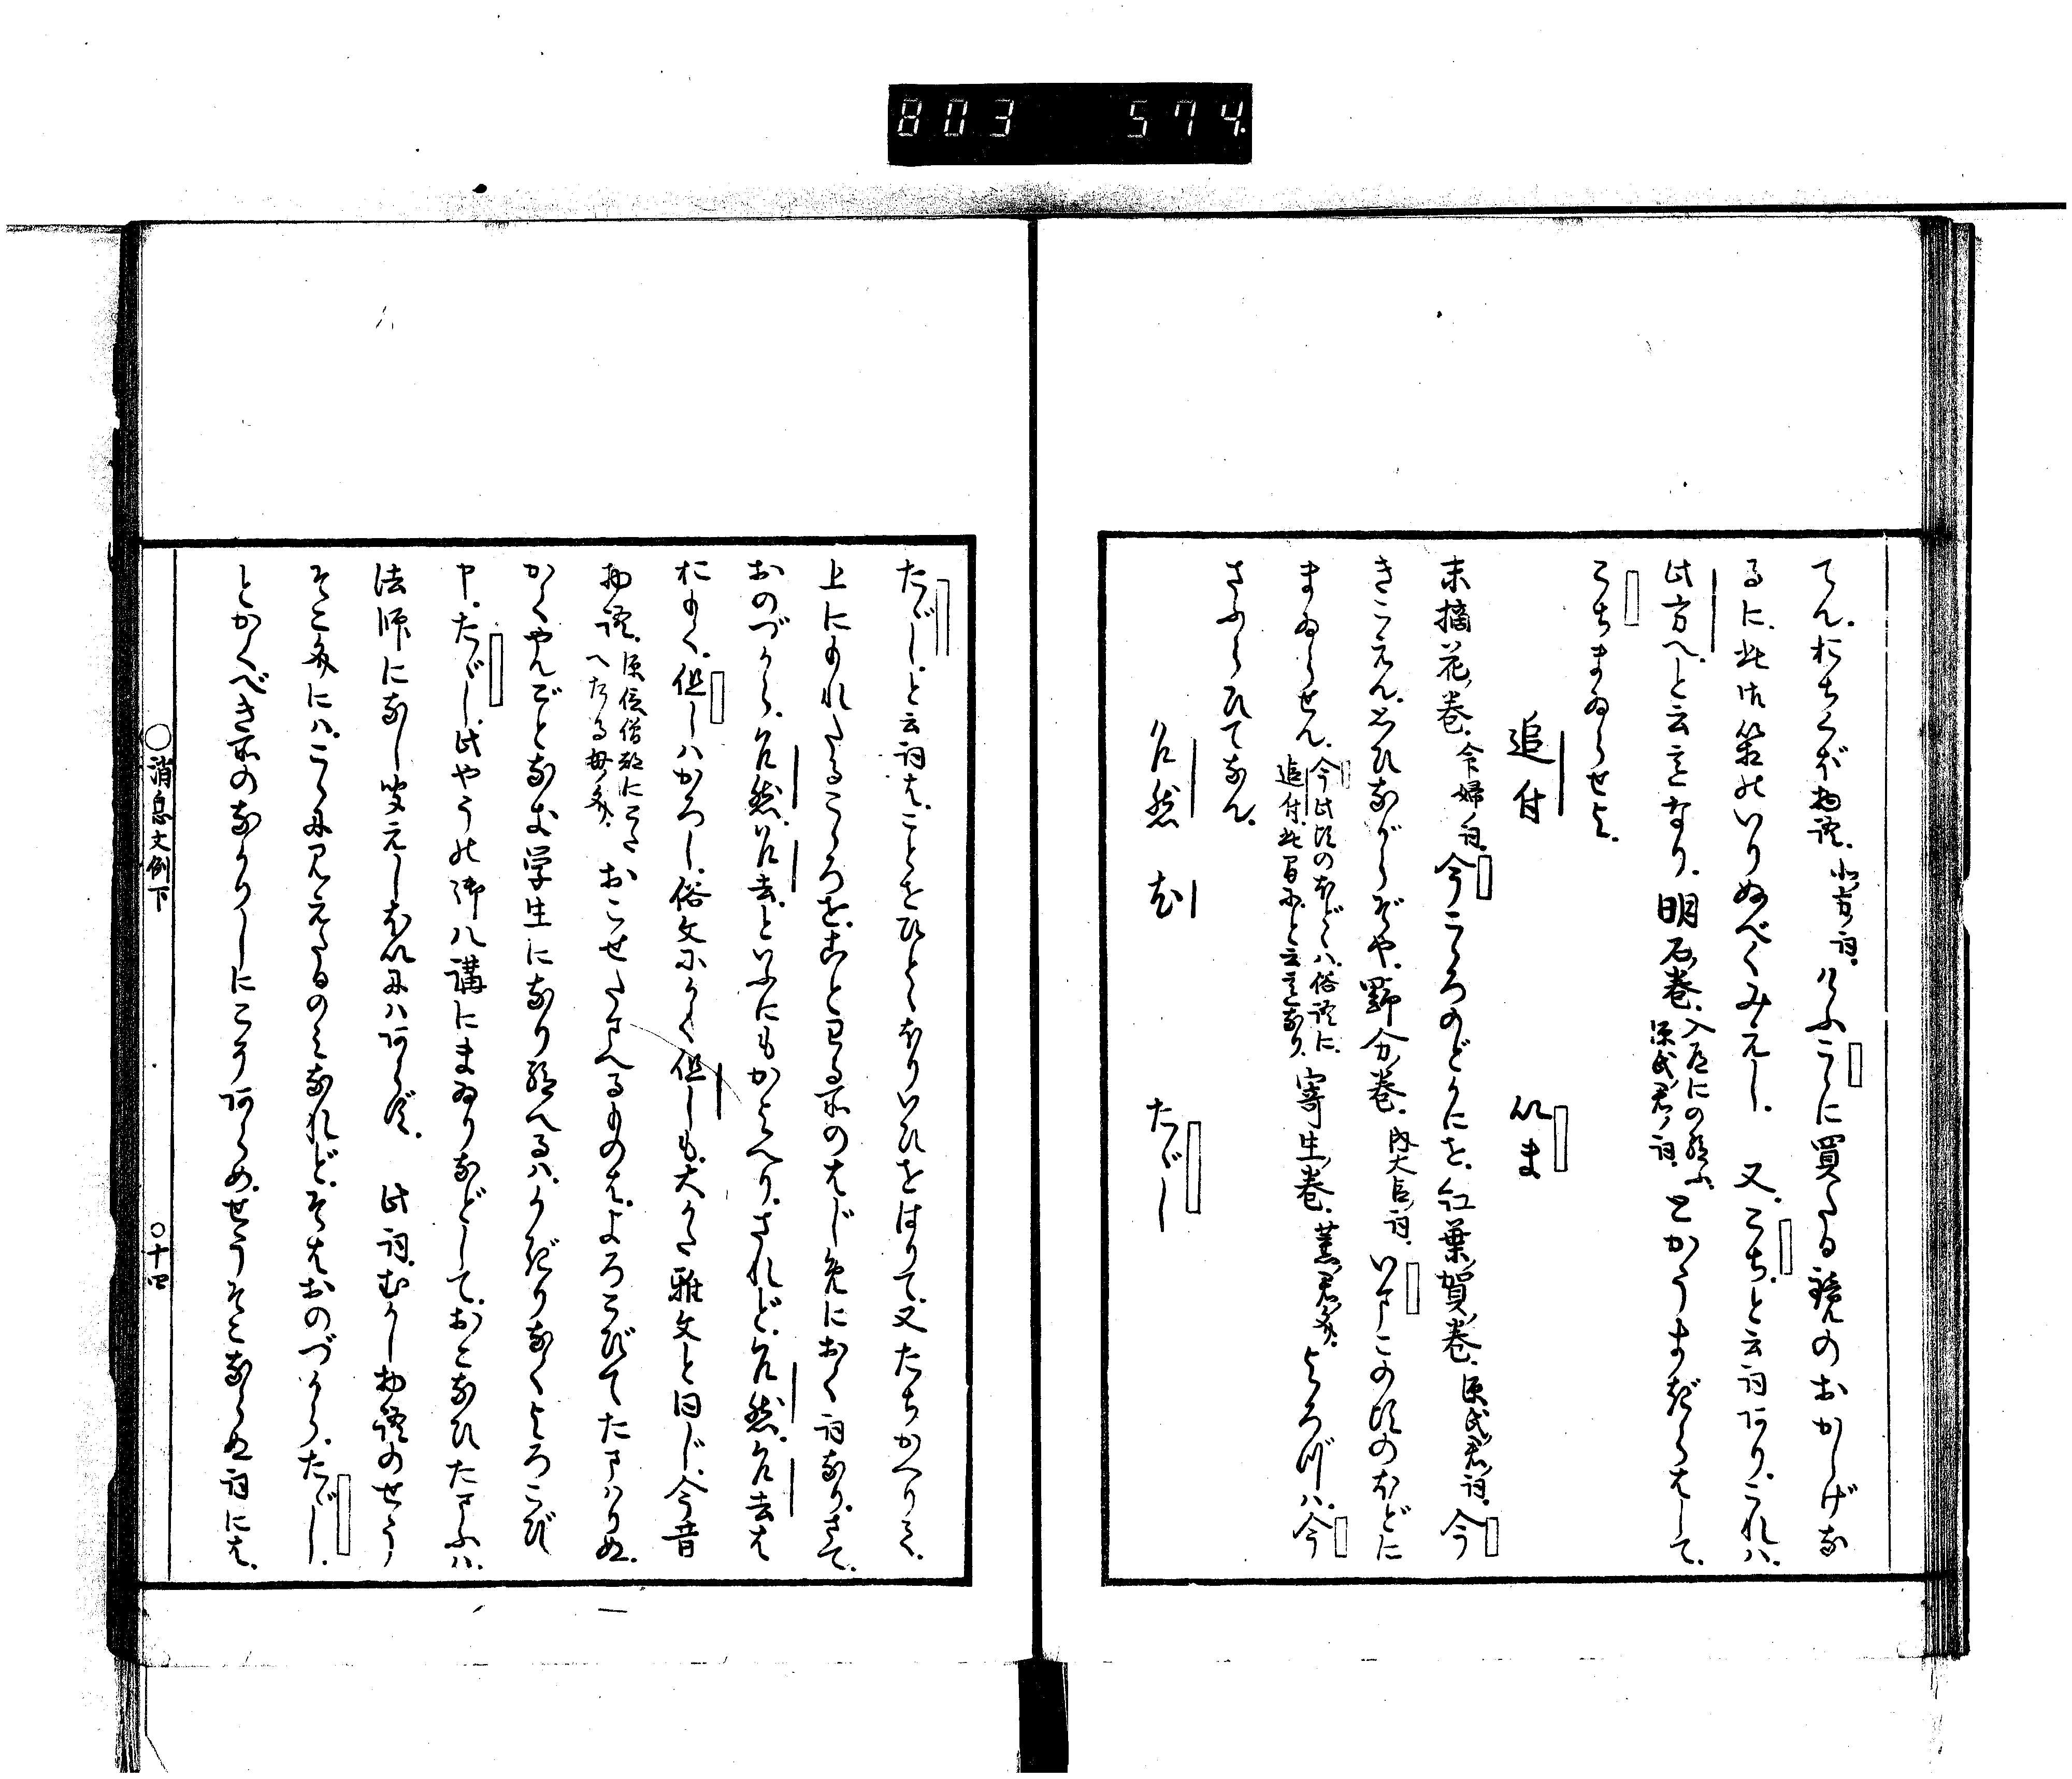 803 574
てん。おちくぼ物語。北方ノ詞。けふこゝに買たる鏡のおかしげな
るに、此御筥のいりぬべくみえし。又。こち。と云詞あり。これハ。
此方へ。と云意なり。明石ノ巻。入道にの給ふ源氏ノ君ノ詞。とかうまぎらはして。
こちまゐらせよ。
追付 いま
末摘花ノ巻。命婦ノ詞。今こゝろのどかにを。紅葉ノ賀ノ巻。源氏ノ君ノ詞。今
きこえん。思ひながらぞや。野分ノ巻。内大臣ノ詞。いまこの頃のほどに
まゐらせん。今此頃のほどハ俗語に。追付。此間に。と云意なり。寄生ノ巻。薫ノ君ノ文。よろづハ。今
さふらひてなん。
乍然 尤 たゞし
たゞし。と云詞は。ことをひとゝほりいひをはりて。又たちかへりて。
上にもれたるこゝろを。ことわる所のはじめにおく詞なり。さて。
おのづから。乍然。乍去。といふにもかよへり。されど。乍然。乍去は
おもく。但しハかろし。俗文にかく但しも。大かた雅文と同じ。今昔
物語。源信僧都にこたへたる母ノ文。おこせたまへるものは。よろこびてたまハりぬ。
かくやんごとなき学生になり給へるハ。かぎりなくよろこび
申。たゞし。此やうの御八講にまゐりなどして。おこなひたまふハ。
法師になし聞えしほいにハあらず。此詞。むかし物語のせう
そこ文にハ。こゝに見えたるのみなれど。そはおのづから。たゞし。
とかくべき所のなかりしにこそあらめ。せうそこならぬ詞には。
○消息文例下 ○十四